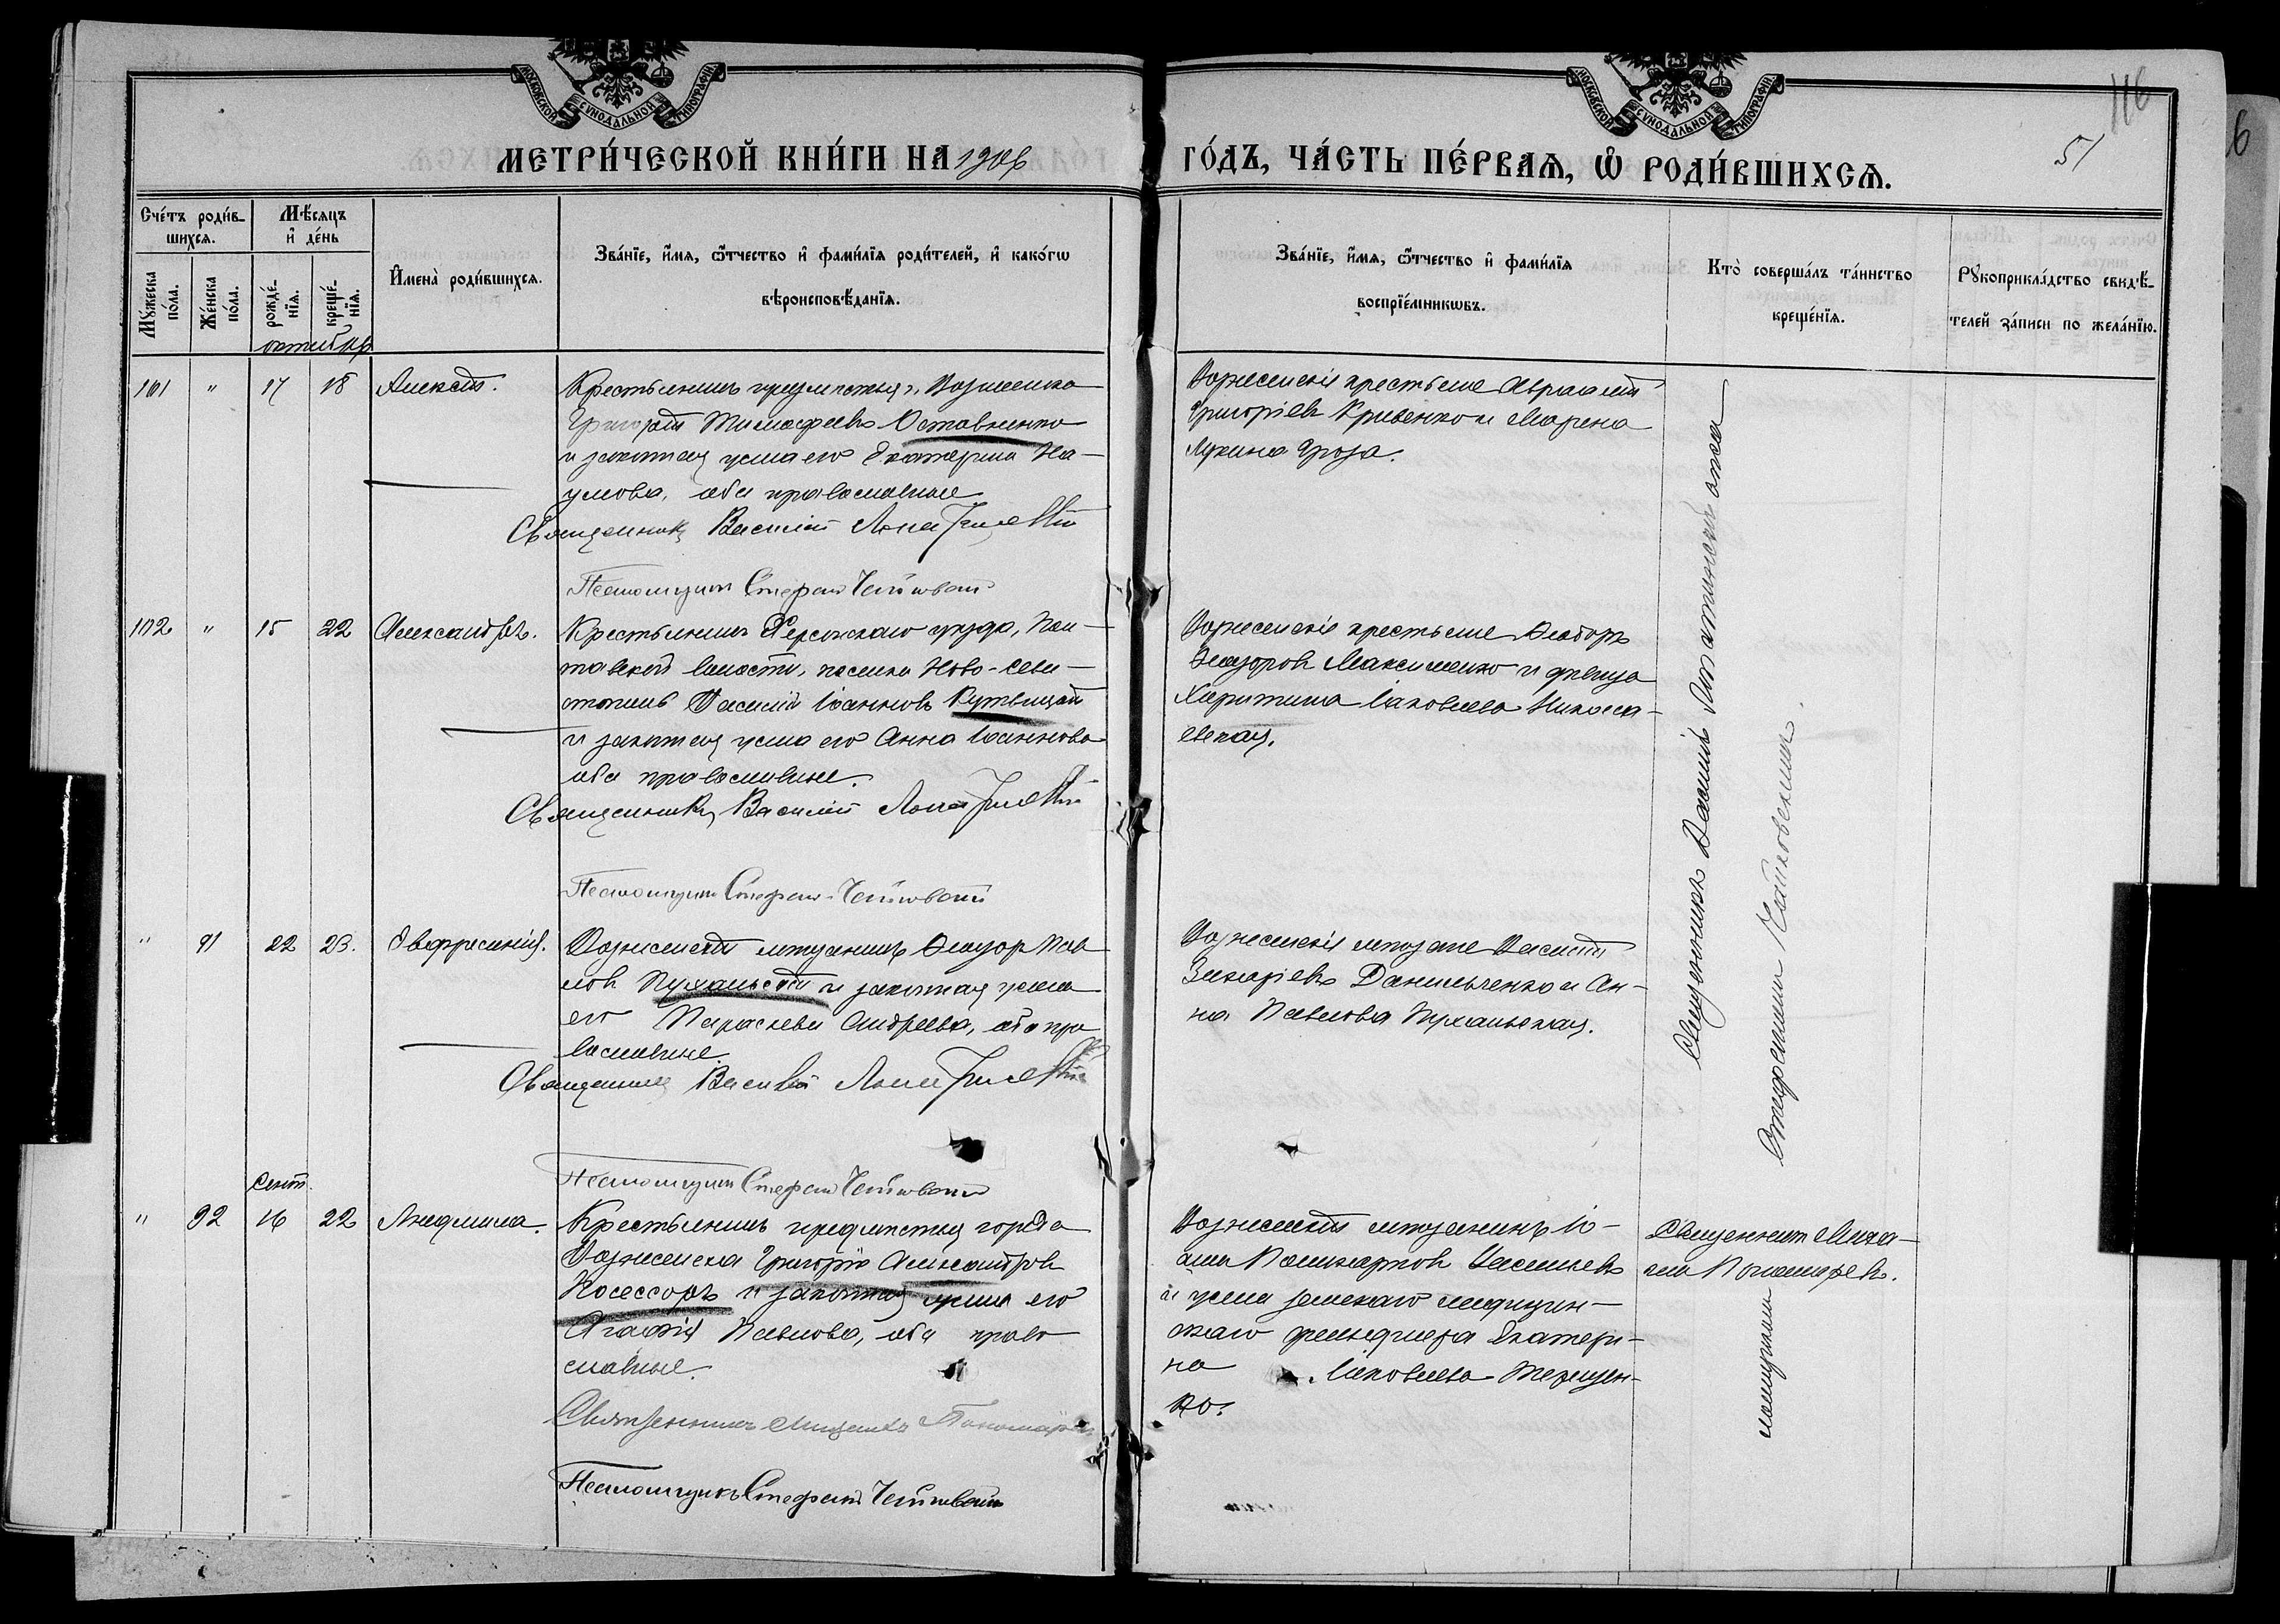 МОСКОВСКОЙ СѴНОДАЛЬНОЙ ТИПОГРАФІИ
МОСКОВСКОЙ СѴНОДАЛЬНОЙ ТИПОГРАФІИ
116
51
6
МЕТРИ́ЧЕСКОЙ КНИ́ГИ НА 1906 ГО́ДЪ, ЧА́СТЬ ПЕ́РВАѦ, Ѡ҆ РОДИ́ВШИХСѦ.
Сче́тъ роди́в-
шихсѧ.
Мѣ́сѧцъ
и҆ де́нь
Мꙋ́жеска
по́ла.
Же́нска
по́ла.
рожде́-
нїѧ.
креще́-
нїѧ.
И҆мена̀ роди́вшихсѧ.
Зва́нїе, и҆́мѧ, ѻ҆́тчество и҆ фами́лїѧ роди́телей, и҆ како́гѡ
вѣроисповѣ́данїѧ.
Зва́нїе, и҆́мѧ, ѻ҆́тчество и҆ фами́лїѧ
воспрїе́мникѡвъ.
Кто̀ соверша́лъ та́инство
креще́нїѧ.
Рꙋкоприкла́дство свидѣ́-
телей за́писи по жела́нїю.
октября
101 " 17 18 Алексій.
Крестьянинъ предмѣстья г. Вознесенска
Григорій Тимофеевъ Остапненко
и законная жена его Екатерина На-
умова, оба православные
Священникъ Василій
Псаломщикъ Стефанъ
Вознесенскіе крестьяне Авраамій
Григоріевъ Кривенко и Марина
Лукина Гроза.
102 " 15 22 Александръ.
Крестьянинъ Херсонскаго уѣзда, Пол-
тавской волости, поселка Ново-Сева-
стополь Василій Іоанновъ
и законная жена его Анна Іоаннова
оба православные.
Священникъ Василій
Псаломщикъ Стефанъ
Вознесенскіе крестьяне Ѳеодоръ
Ѳеодоровъ Максименко и дѣвица
Харитина Іаковлева Никола-
евская.
" 91 22 23. Евфросинія.
Вознесенскій мѣщанинъ Ѳеодоръ Пав-
ловъ Пухальскій и законная жена
его Параскева Андреева, оба пра-
вославные.
Священникъ Василій
Псаломщикъ Стефанъ
Вознесенскіе мѣщане Василій
Захаріевъ Данильченко и Ан-
на Павлова Пухальская.
Сент.
" 92 16 22 Людмила.
Крестьянинъ предмѣстья города
Вознесенска Григорій Александровъ
Посессоръ и законная жена его
Агафія Павлова, оба право
славные.
Священникъ Михаилъ Пономаревъ
Псаломщикъ Стефанъ
Вознесенскій мѣщанинъ Іо-
аннъ Васильевъ
и жена земскаго медицин-
скаго фельдшера Екатери-
на Іаковлева Терещен-
ко.
Священникъ Миха-
илъ Пономаревъ.
Священникъ Василій
псаломщикомъ Стефаномъ